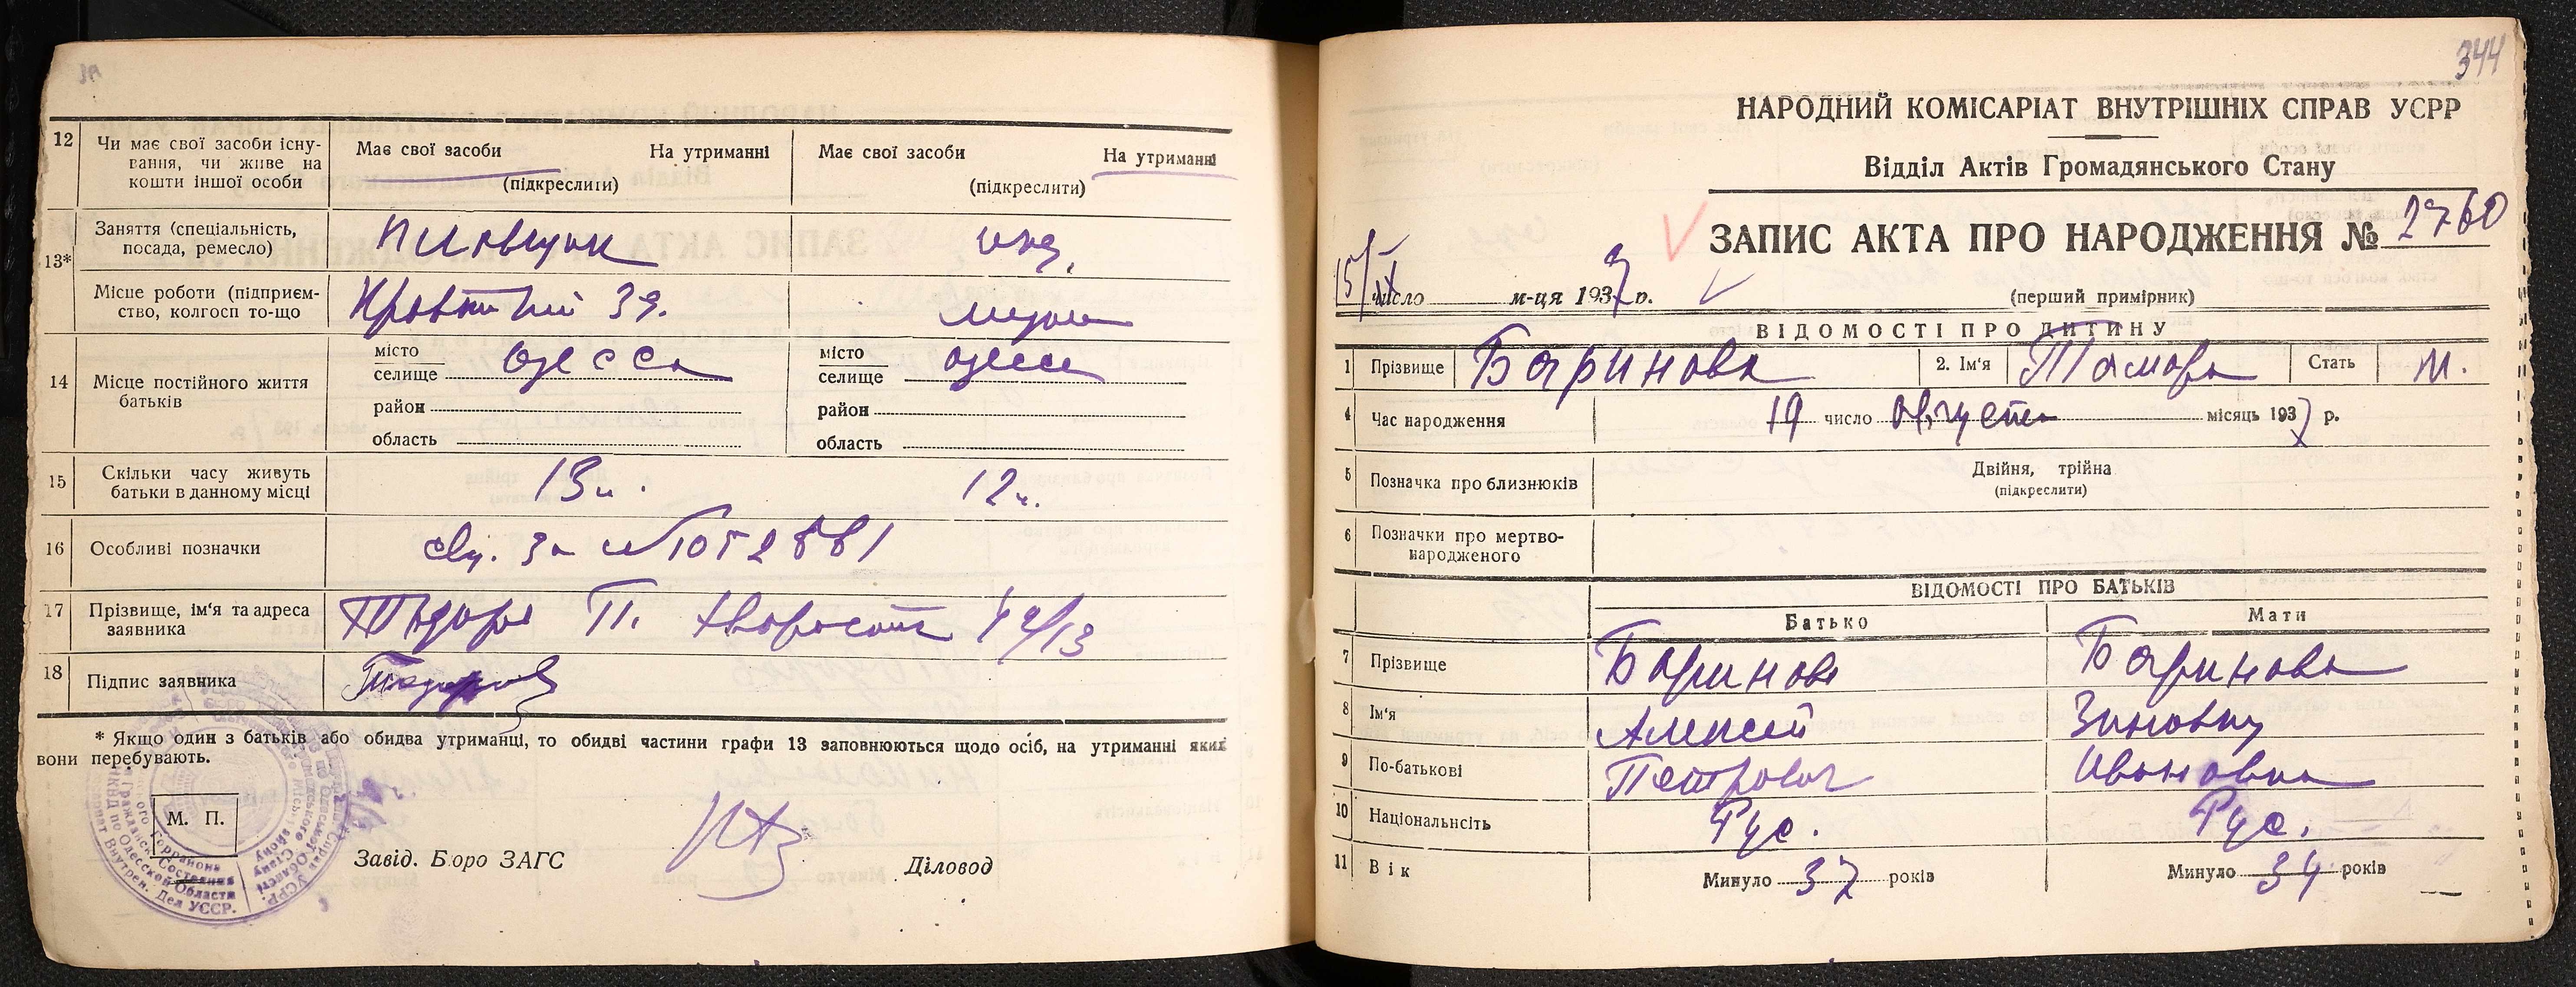 12 Чи має свої засоби існу-
вання, чи живе на
кошти іншої особи
Має свої засоби На утриманні
(підкреслити)
Має свої засоби На утриманні
(підкреслити)
13* Заняття (спеціальність,
посада, ремесло)
Місце роботи (підприєм-
ство, колгосп то-що
39.
14 Місце постійного життя
батьків
місто
селище Одесса
район
область
місто
селище Одесса
район
область
15 Скільки часу живуть
батьки в данному місці
13 12
16 Особливі позначки
17 Прізвище, ім'я та адреса
заявника
П. 42/13
18 Підпис заявника
* Якщо один з батьків або обидва утриманці, то обидві частини графи 13 заповнюються щодо осіб, на утриманні яких
вони перебувають.
М. П.
Завід. Бюро ЗАГС Діловод
344
НАРОДНИЙ КОМІСАРІАТ ВНУТРІШНІХ СПРАВ УСРР
Відділ Актів Громадянського Стану
ЗАПИС АКТА ПРО НАРОДЖЕННЯ № 2760
15/IX число м-ця 1937 р.
(перший примірник)
ВІДОМОСТІ ПРО ДИТИНУ
1 Прізвище Баринова 2. Ім'я Тамара Стать
4 Час народження 19 число Августа місяць 1937 р.
5 Позначка про близнюків Двійня, трійна
(підкреслити)
6 Позначки про мертво-
народженого
ВІДОМОСТІ ПРО БАТЬКІВ
Батько Мати
7 Прізвище Баринов Баринова
8 Ім'я Алексей
9 По-батькові Петрович Ивановна
10 Національнсіть Рус. Рус.
11 Вік Минуло 37 років Минуло 34 років